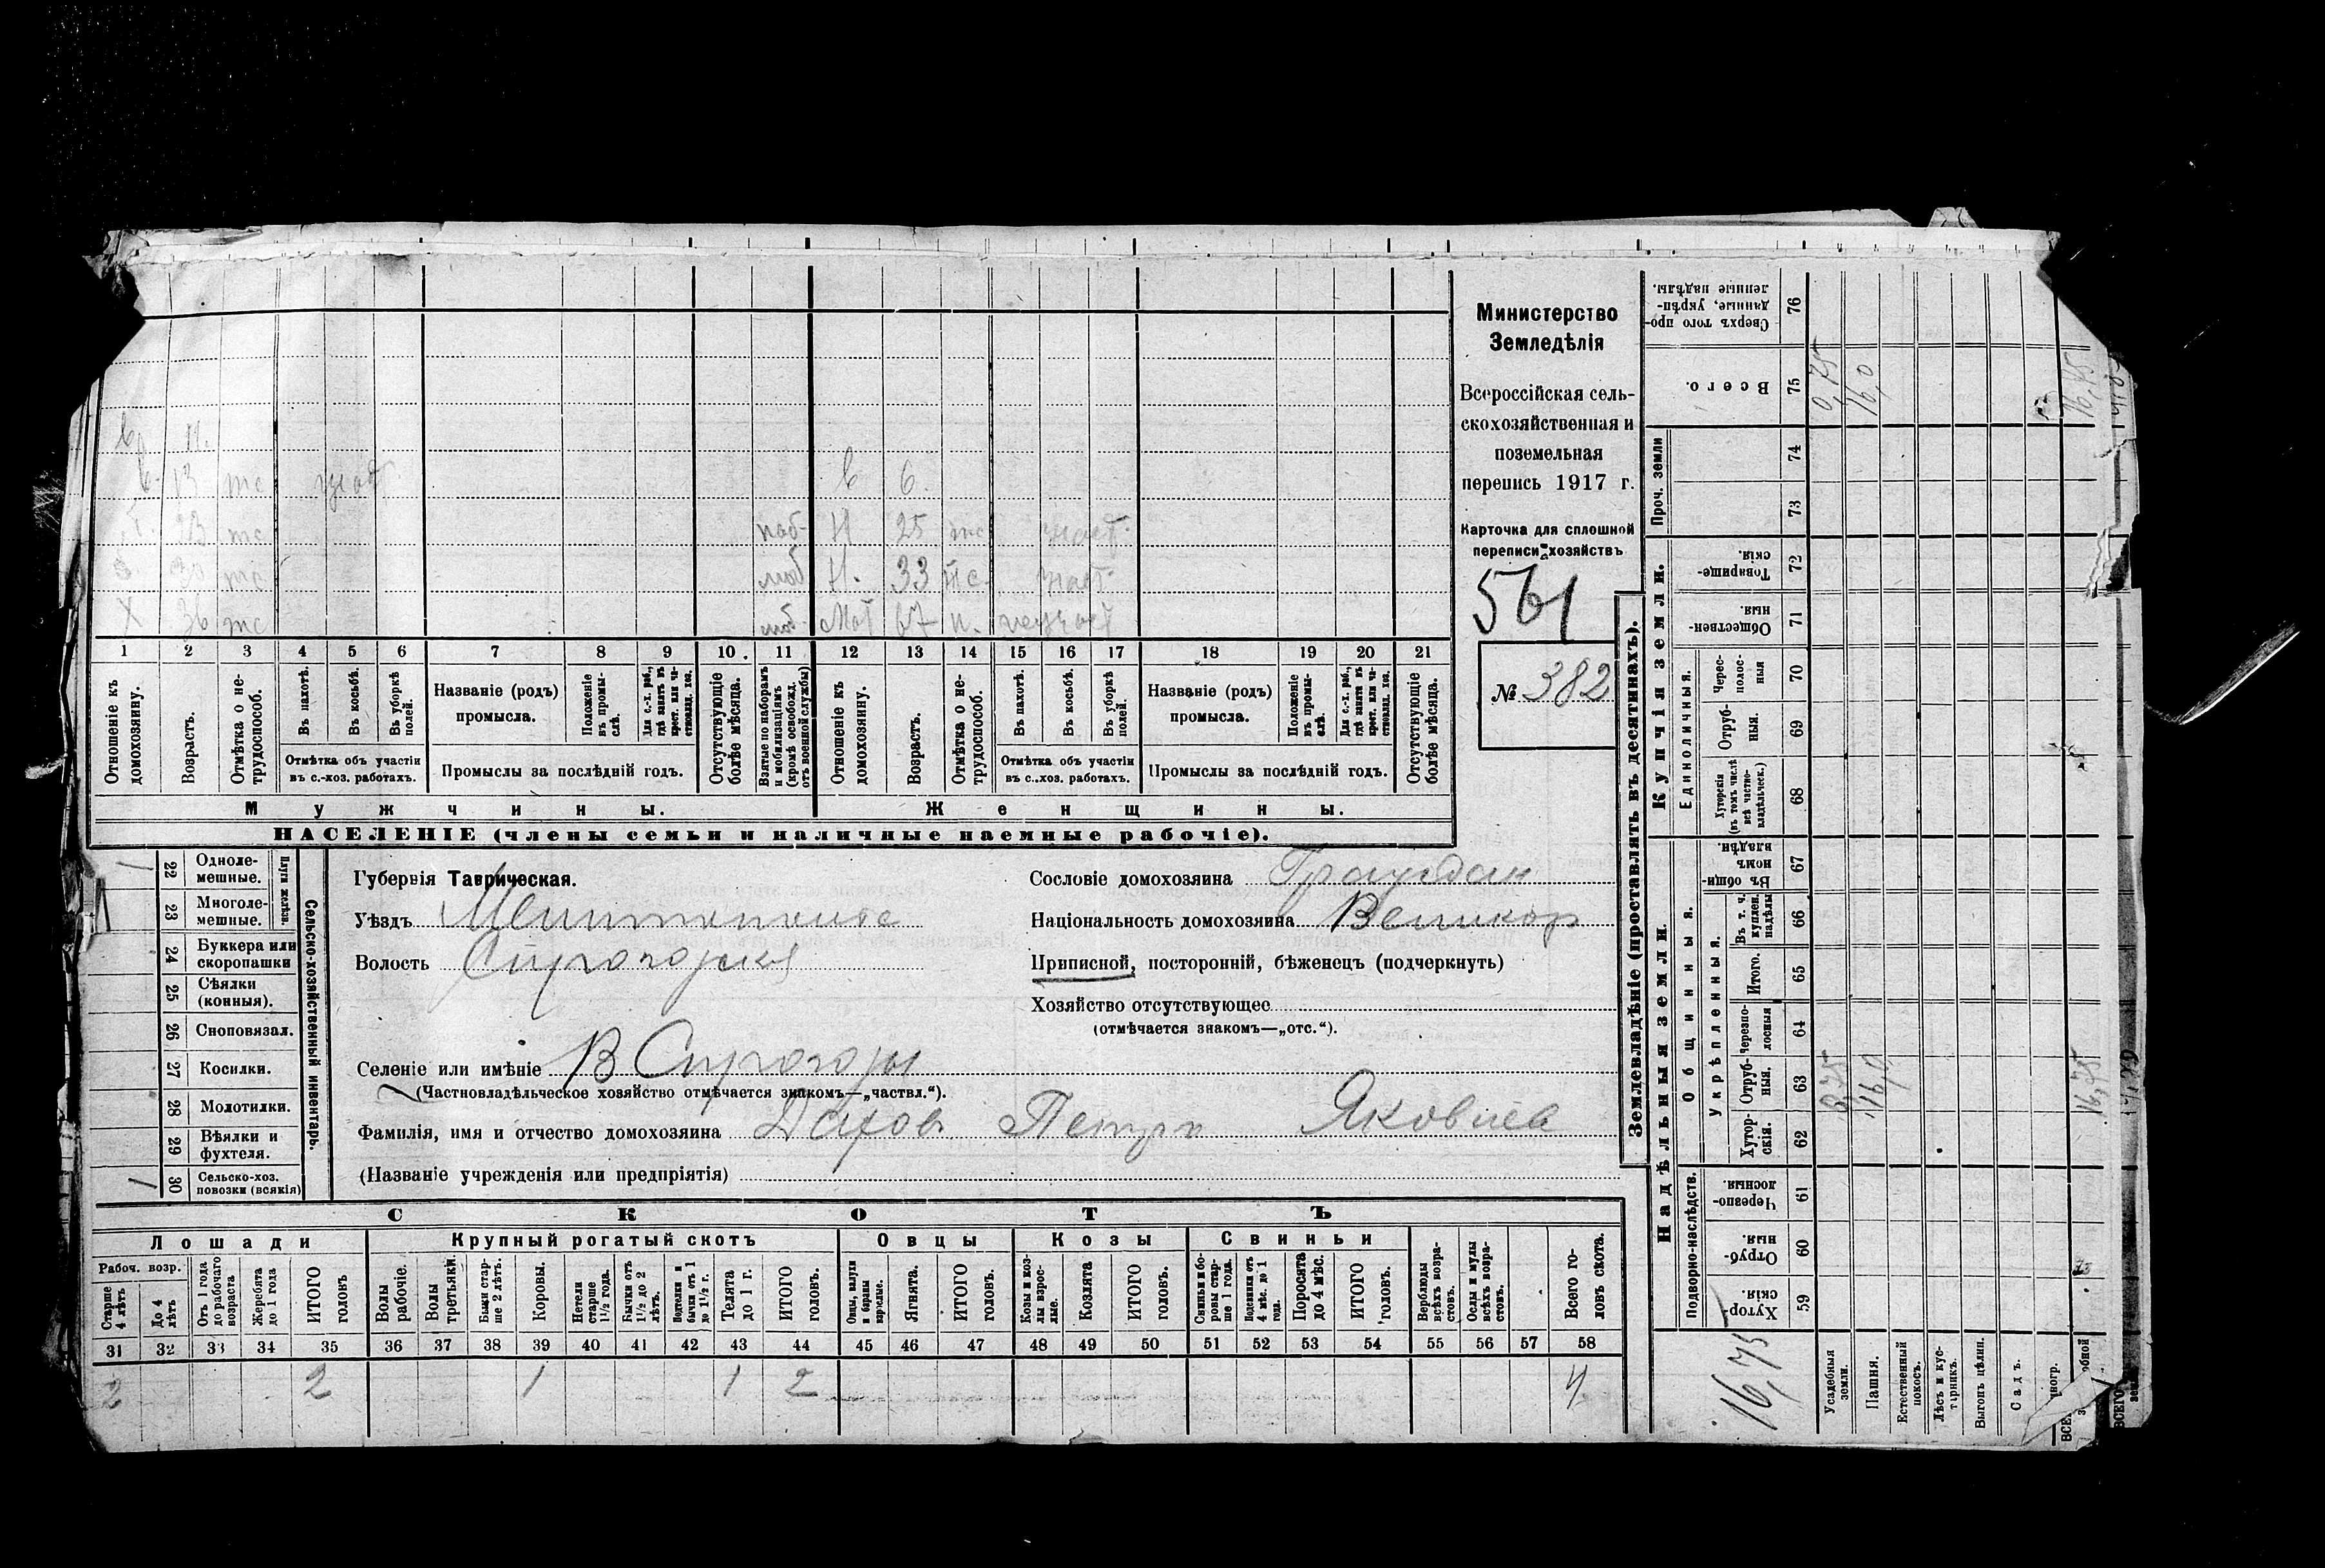 Министерство
Земледѣлія
Всероссійская сель-
скохозяйственная и
поземельная
перепись 1917 г.
Карточка для сплошной
переписи хозяйствъ
561
№ 382
в 11.
в. 13 тс участ. в 6.
23 тс моб Н 25 тс участ.
30 тс моб Н. 33 тс участ.
Х 36 тс моб Мат 67 н. неучаст
1 2 3 4 5 6 7 8 9 10 11 12 13 14 15 16 17 18 19 20 21
Отношеніе къ домохозяину.
Возрастъ.
Отмѣтка о не-трудоспособ.
Въ пахотѣ.
Въ косьбѣ.
Въ уборкѣ полей.
Отмѣтка объ участіи въ с.-хоз. работахъ.
Названіе (родъ) промысла.
Положеніе въ промы-слѣ.
Для с.-х. раб., гдѣ занятъ въ крест. или ча-стновлад. хоз.
Промыслы за послѣдній годъ.
Отсутствующіе болѣе мѣсяца.
Взятые по наборамъ и мобилизаціямъ (кромѣ освобожд. отъ военной службы)
Отношеніе къ домохозяину.
Возрастъ.
Отмѣтка о не-трудоспособ.
Въ пахотѣ.
Въ косьбѣ.
Въ уборкѣ полей.
Отмѣтка объ участіи въ с.-хоз. работахъ.
Названіе (родъ) промысла.
Положеніе въ промы-слѣ.
Для с.-х. раб., гдѣ занята въ крест. или ча-стновлад. хоз.
Промыслы за послѣдній годъ.
Отсутствующіе болѣе мѣсяца.
Мужчины. Женщины.
НАСЕЛЕНІЕ (члены семьи и наличные наемные рабочіе).
Сельско-хозяйственный инвентарь.
Плуги желѣзн.
22 Одноле-мешные. 1
23 Многоле-мешные.
24 Буккера или скоропашки
25 Сѣялки (конныя).
26 Сноповязал.
27 Косилки.
28 Молотилки.
29 Вѣялки и фухтеля.
30 Сельско-хоз. повозки (всякія) 1
Губернія Таврическая.
Уѣздъ Мелитопольс
Волость Сирогозская
Селеніе или имѣніе В Сирогозы
(Частновладѣльческое хозяйство отмѣчается знакомъ—„частвл.“).
Фамилія, имя и отчество домохозяина Петръ Яковлев
(Названіе учрежденія или предпріятія)
Сословіе домохозяина Граждан
Національность домохозяина Великор
Приписной, посторонній, бѣженецъ (подчеркнуть)
Хозяйство отсутствующее
(отмѣчается знакомъ—„отс.“).
СКОТЪ
Лошади Крупный рогатый скотъ Овцы Козы Свиньи
Рабоч. возр.
Старше 4 лѣтъ
До 4 лѣтъ
Отъ 1 года до рабочаго возраста
Жеребята до 1 года
ИТОГО головъ
Волы рабочіе.
Волы третьяки.
Быки стар-ше 2 лѣтъ.
Коровы.
Нетели старше 1½ года.
Бычки отъ 1½ до 2 лѣтъ.
Подтелки и бычки отъ 1 до 1½ г.
Телята до 1 г.
ИТОГО головъ.
Овцы, валухи и бараны взрослые.
Ягнята.
ИТОГО головъ.
Козы и коз-лы взрос-лые.
Козлята
ИТОГО головъ.
Свиньи и бо-ровы стар-ше 1 года.
Подсвинки отъ 4 мѣс. до 1 года.
Поросята до 4 мѣс.
ИТОГО головъ.
Верблюды всѣхъ возра-стовъ.
Ослы и мулы всѣхъ возра-стовъ.
Всего го-ловъ скота.
31 32 33 34 35 36 37 38 39 40 41 42 43 44 45 46 47 48 49 50 51 52 53 54 55 56 57 58
2 2 1 1 2 4
Землевладѣніе (проставлять въ десятинахъ).
Надѣльныя земли.
Купчія земли.
Проч. земли
Подворно-наслѣдств.
Общинныя.
Укрѣпленныя.
Единоличныя.
59 Хутор-скія.
60 Отруб-ныя.
61 Черезпо-лосныя.
62 Хутор-скія.
63 Отруб-ныя.
64 Черезпо-лосныя
65 Итого.
66 Въ т. ч. куплен. надѣлы
67 Въ общи-номъ владѣн.
68 Хуторскія (въ томъ числѣ всѣ частно-владѣльческ.)
69 Отруб-ныя.
70 Черес-полос-ныя
71 Обществен-ныя.
72 Товарище-скія.
73
74
75 Всего.
76 Сверхъ того про-данные, укрѣп-ленные надѣлы.
16,75
Усадебныя земли. 0,75 0,75
Пашня. 16,0 16,0
Естественный покосъ.
Лѣсъ и кус-тарникъ.
Выгонъ цѣлин.
Садъ.
16,75 16,75